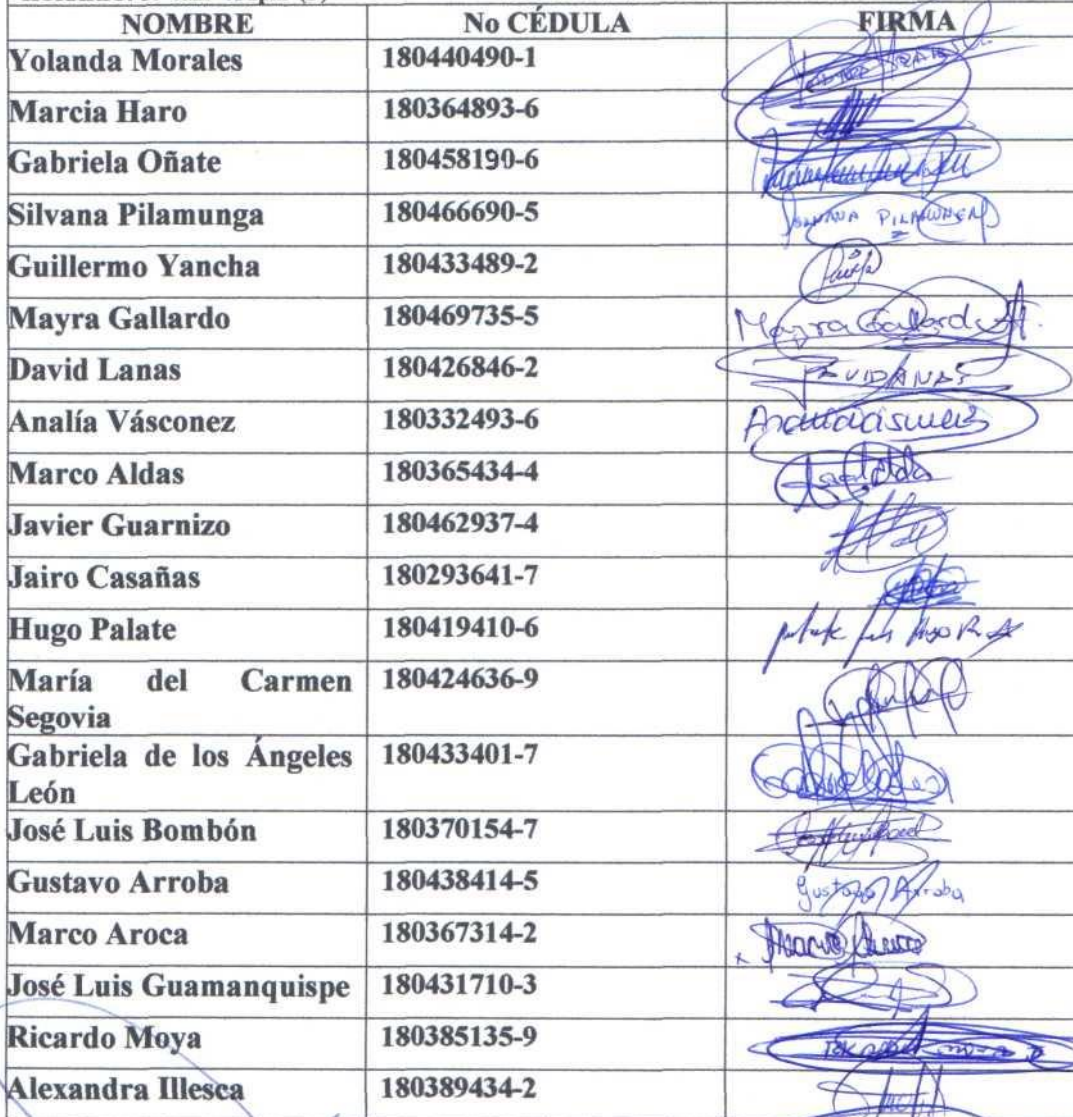 NOMBRE No CÉDULA FIRMA
Yolanda Morales 180440490-1
Marcia Haro 180364893-6
Gabriela Oñate 180458190-6
Silvana Pilamunga 180466690-5 SILVANA PILAMUNGA
Guillermo Yancha 180433489-2
Mayra Gallardo 180469735-5 Mayra Gallardo
David Lanas 180426846-2 DAVID LANAS
Analía Vásconez 180332493-6
Marco Aldas 180365434-4
Javier Guarnizo 180462937-4
Jairo Casañas 180293641-7
Hugo Palate 180419410-6 palate Hugo
María del Carmen 180424636-9
Segovia
Gabriela de los Ángeles 180433401-7
León
José Luis Bombón 180370154-7
Gustavo Arroba 180438414-5 Gustavo Arroba
Marco Aroca 180367314-2
José Luis Guamanquispe 180431710-3
Ricardo Moya 180385135-9
Alexandra Illesca 180389434-2